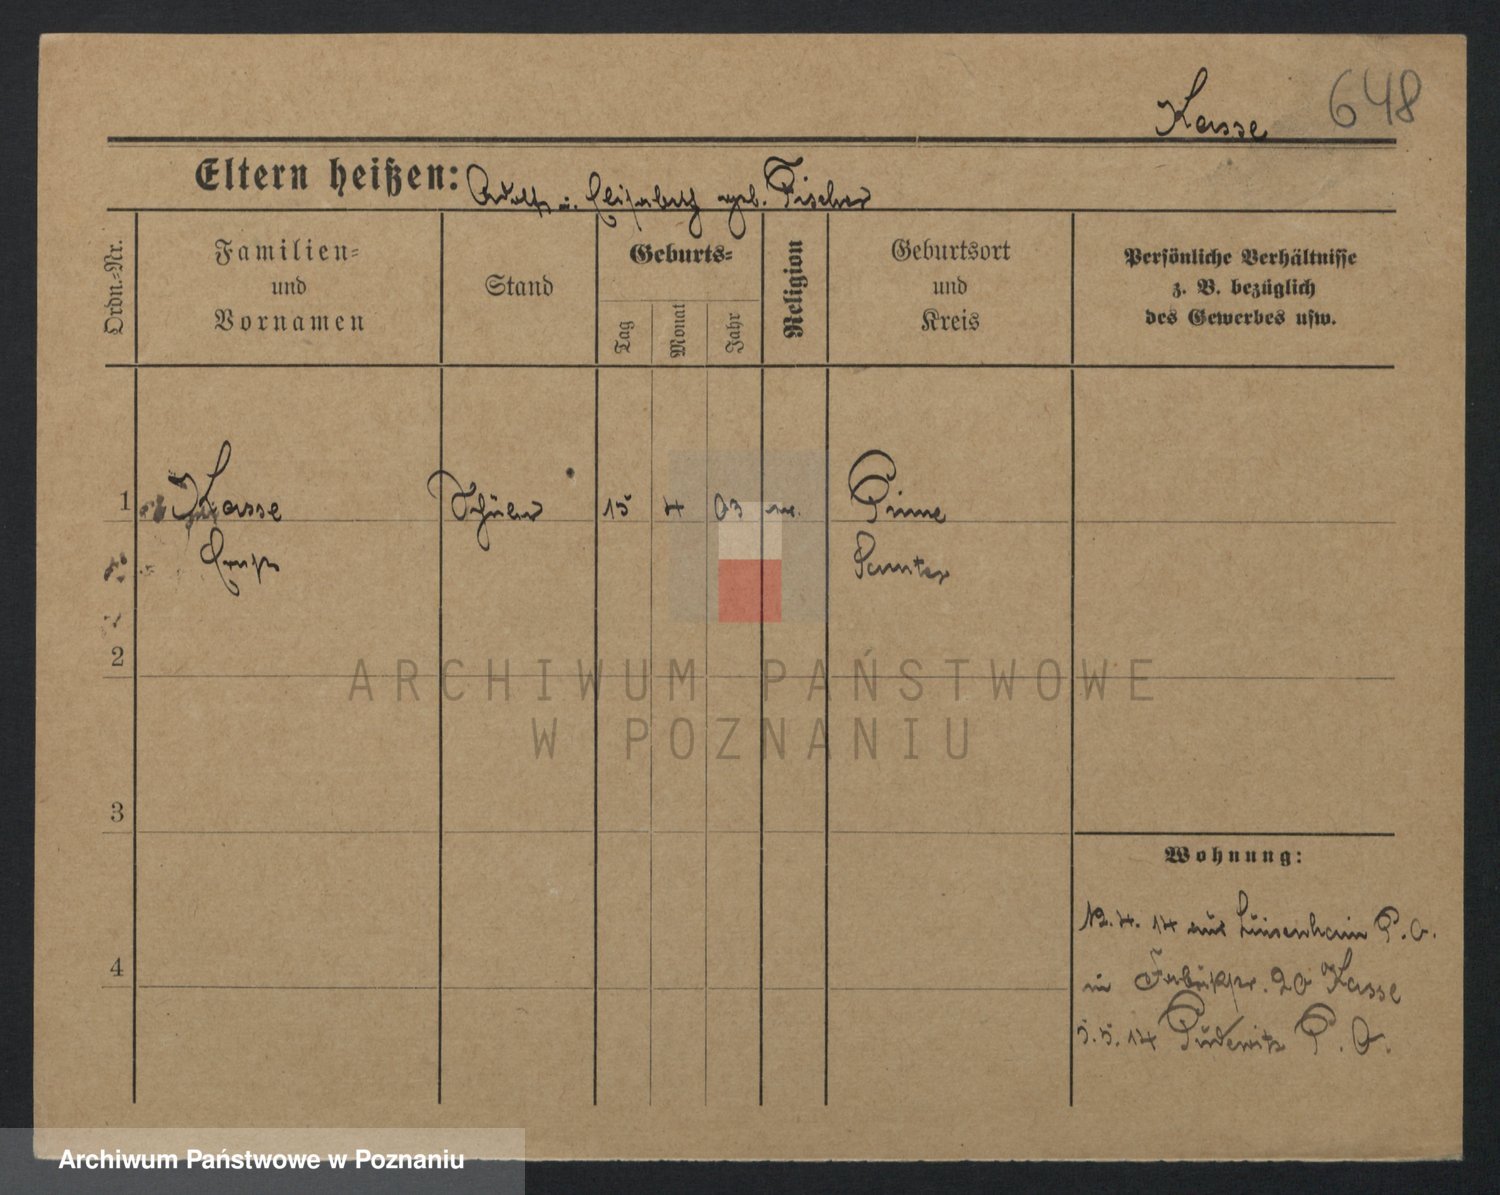 Kasse 648
Eltern heißen: Adolf u. Elisabeth geb. Fischer
Ordn.-Nr.
Familien-
und
Vornamen
Stand
Geburts-
Tag
Monat
Jahr
Religion
Geburtsort
und
Kreis
Persönliche Verhältnisse
z. B. bezüglich
des Gewerbes usw.
1 Kasse Schüler 15 4 03 Pinne
Ernst Samter
2
3
4
Wohnung:
12.4.14 aus Luisenhain P. O.
in Fabrikstr. 20 Kasse
5.5.14 Pudewitz P. O.
ARCHIWUM PAŃSTWOWE
W POZNANIU
Archiwum Państwowe w Poznaniu